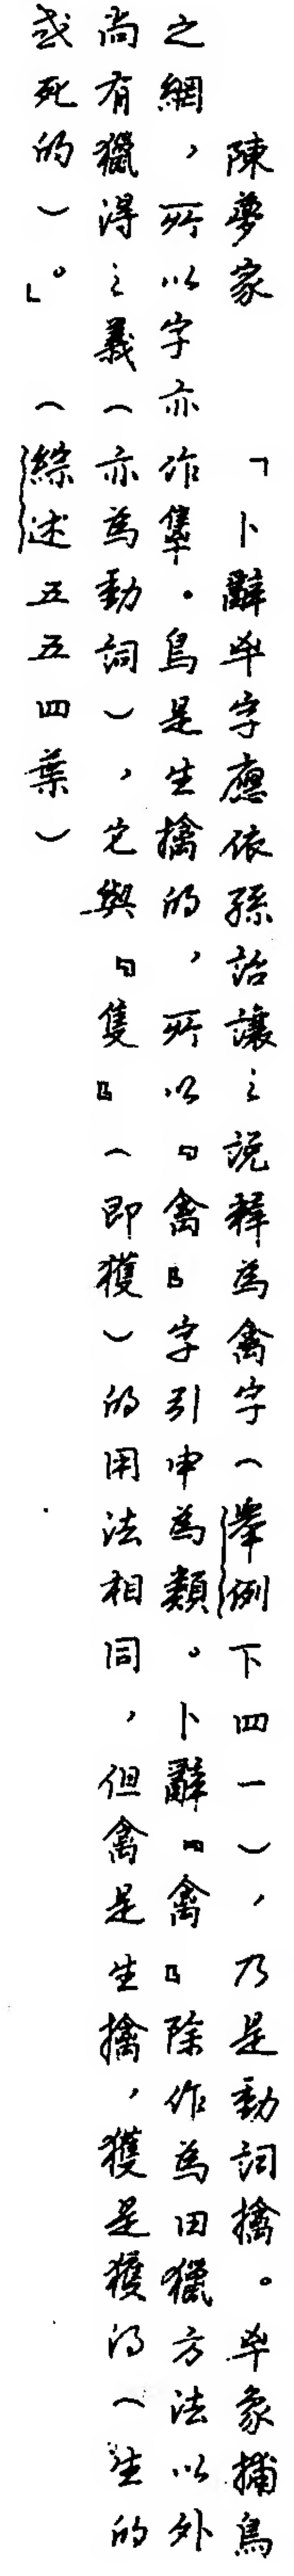 陳夢家　「卜辭𠦒字應依孫詒讓之説釋為禽字（舉例下四一），乃是動詞擒。𠦒象捕鳥
之網，所以字亦作𨾴。鳥是生擒的，所以『禽』字引申為類。卜辭『禽』除作為田獵方法以外
尚有獵得之義（亦為動詞），它與『隻』（即獲）的用法相同，但禽是生擒，獲是獲得（生的
或死的）。」（綜述五五四葉）